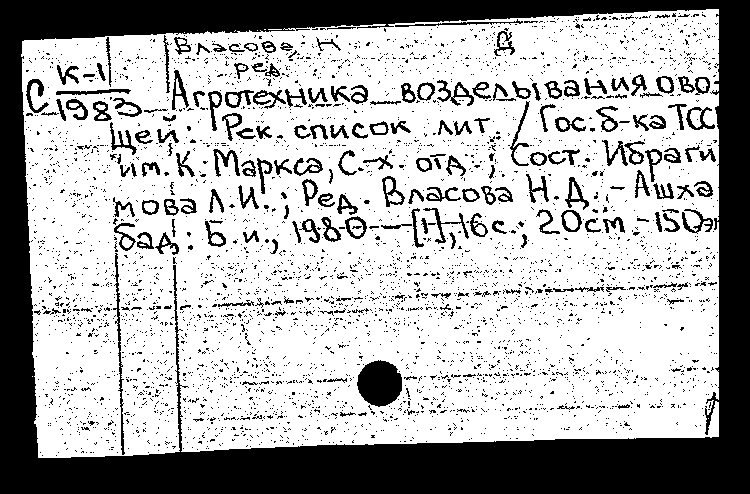 Власова Н Д
ред
С К-1
1983
Агротехника возделывания ово-
щей: Рек. список лит. / Гос. б-ка ТССР
им. К. Маркса, С.-х. отд.; Сост. Ибраги
мова Л.И.; Ред. Власова Н.Д. - Ашха
бад: Б.и., 1980. - [1], 16 с.; 20 см. - 150 эк